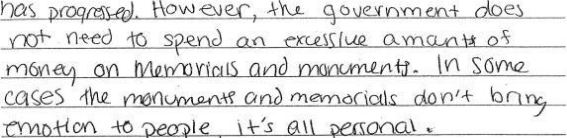 has progressed. However, the government does
not need to spend an excessive amants of
money on memorials and monuments. In some
cases the monuments and memorials don't bring
emotion to people it's all personal.